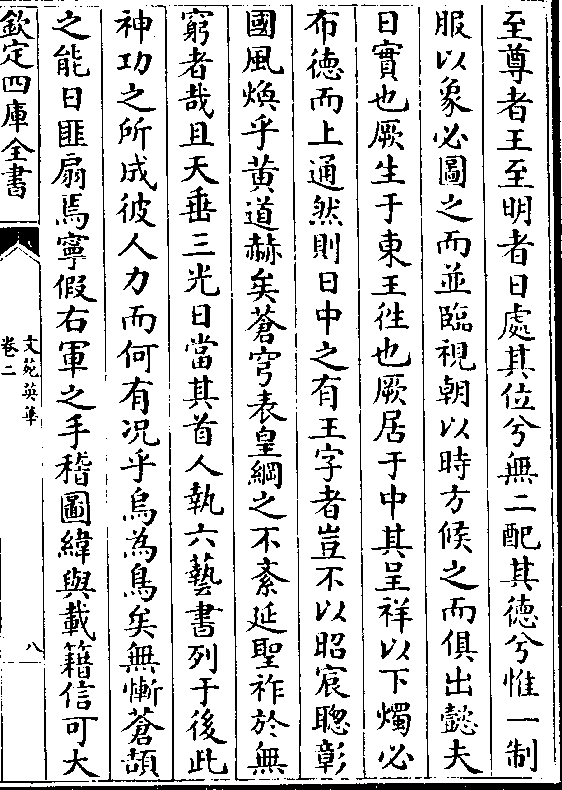 至尊者王至明者日處其位兮無二配其德兮惟一制
服以象必圖之而並臨視朝以時方候之而俱出懿夫
日實也厥生于東王徃也厥居于中其呈祥以下燭必
布德而上通然則日中之有王字者豈不以昭宸聰彰
國風煥乎黄道赫矣蒼穹表皇綱之不紊延聖祚於無
窮者哉且天垂三光日當其首人執六藝書列于後此
神功之所成彼人力而何有况乎烏為鳥矣無慚蒼頡
之能日匪扇焉寧假右軍之手稽圖緯與載籍信可大
欽定四庫全書
文苑英華
卷二
八